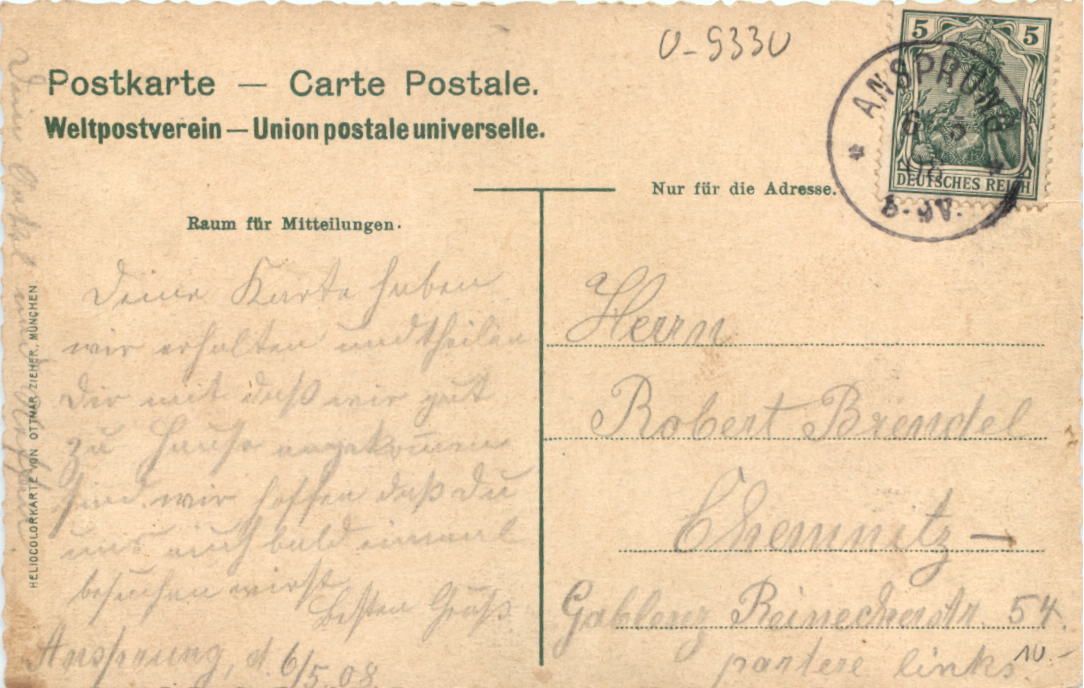 Postkarte — Carte Postale.
Weltpostverein — Union postale universelle.
Raum für Mitteilungen.
Nur für die Adresse.
5 5
DEUTSCHES REICH
* ANSPRUNG *
6 5
08
8-9V.
Deine Karte haben
wir erhalten und theilen
Dir mit daß wir gut
zu Hause angekom̄en
sind wir hoffen daß Du
uns auch bald einmal
besuchen wirst
Besten Gruß
Ansprung, d. 6/5.08
Dein und
HELIOCOLORKARTE VON OTTMAR ZIEHER, MÜNCHEN
Herrn
Robert Brendel
Chemnitz —
Gablenz Reineckerstr. 54.
partere links.
10.-